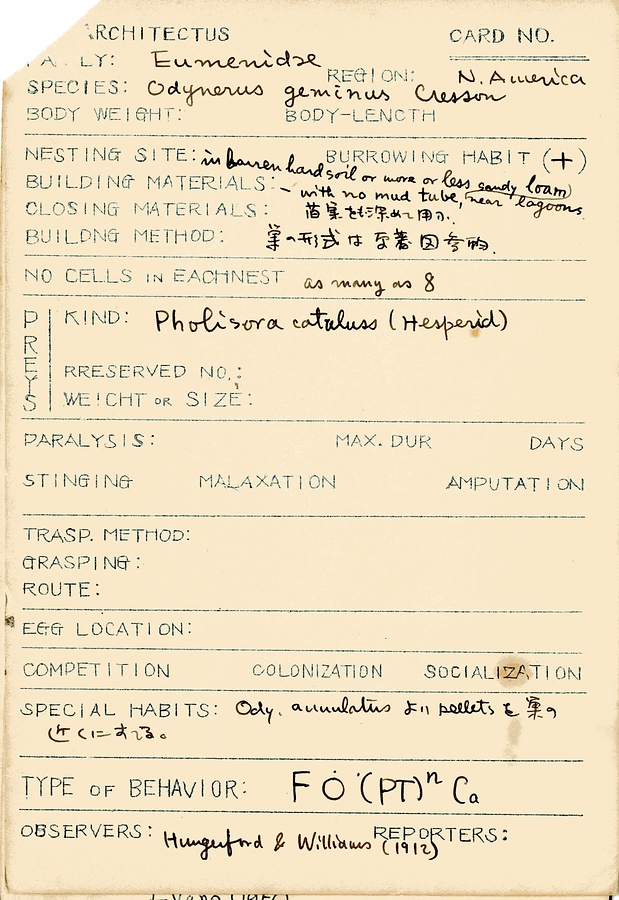 ARCHITECTUS CARD NO.
LY: Eumenidae
REGION: N. America
SPECIES: Odynerus geminus Cresson
BODY WEIGHT: BODY-LENCTH
NESTING SITE: in barren hard soil or more or less sandy loam) BURROWING HABIT (+)
BUILDING MATERIALS: – with no mud tube, near lagoons.
CLOSING MATERIALS:
BUILDNG METHOD: 巣の形式は 原著図参照.
NO CELLS IN EACHNEST as many as 8
PREYS
KIND: Pholisora cataluss (Hesperid)
RRESERVED NO.:
WEICHT OR SIZE:
PARALYSIS: MAX. DUR DAYS
STINGING MALAXATION AMPUTATION
TRASP. METHOD:
GRASPING:
ROUTE:
EGG LOCATION:
COMPETITION COLONIZATION SOCIALIZATION
SPECIAL HABITS: Ody. annulatus より pellets を 巣の
近くにすてる。
TYPE OF BEHAVIOR: F Ȯ (PT)ⁿ Ca
OBSERVERS: Hungerford & Williams (1912) REPORTERS: